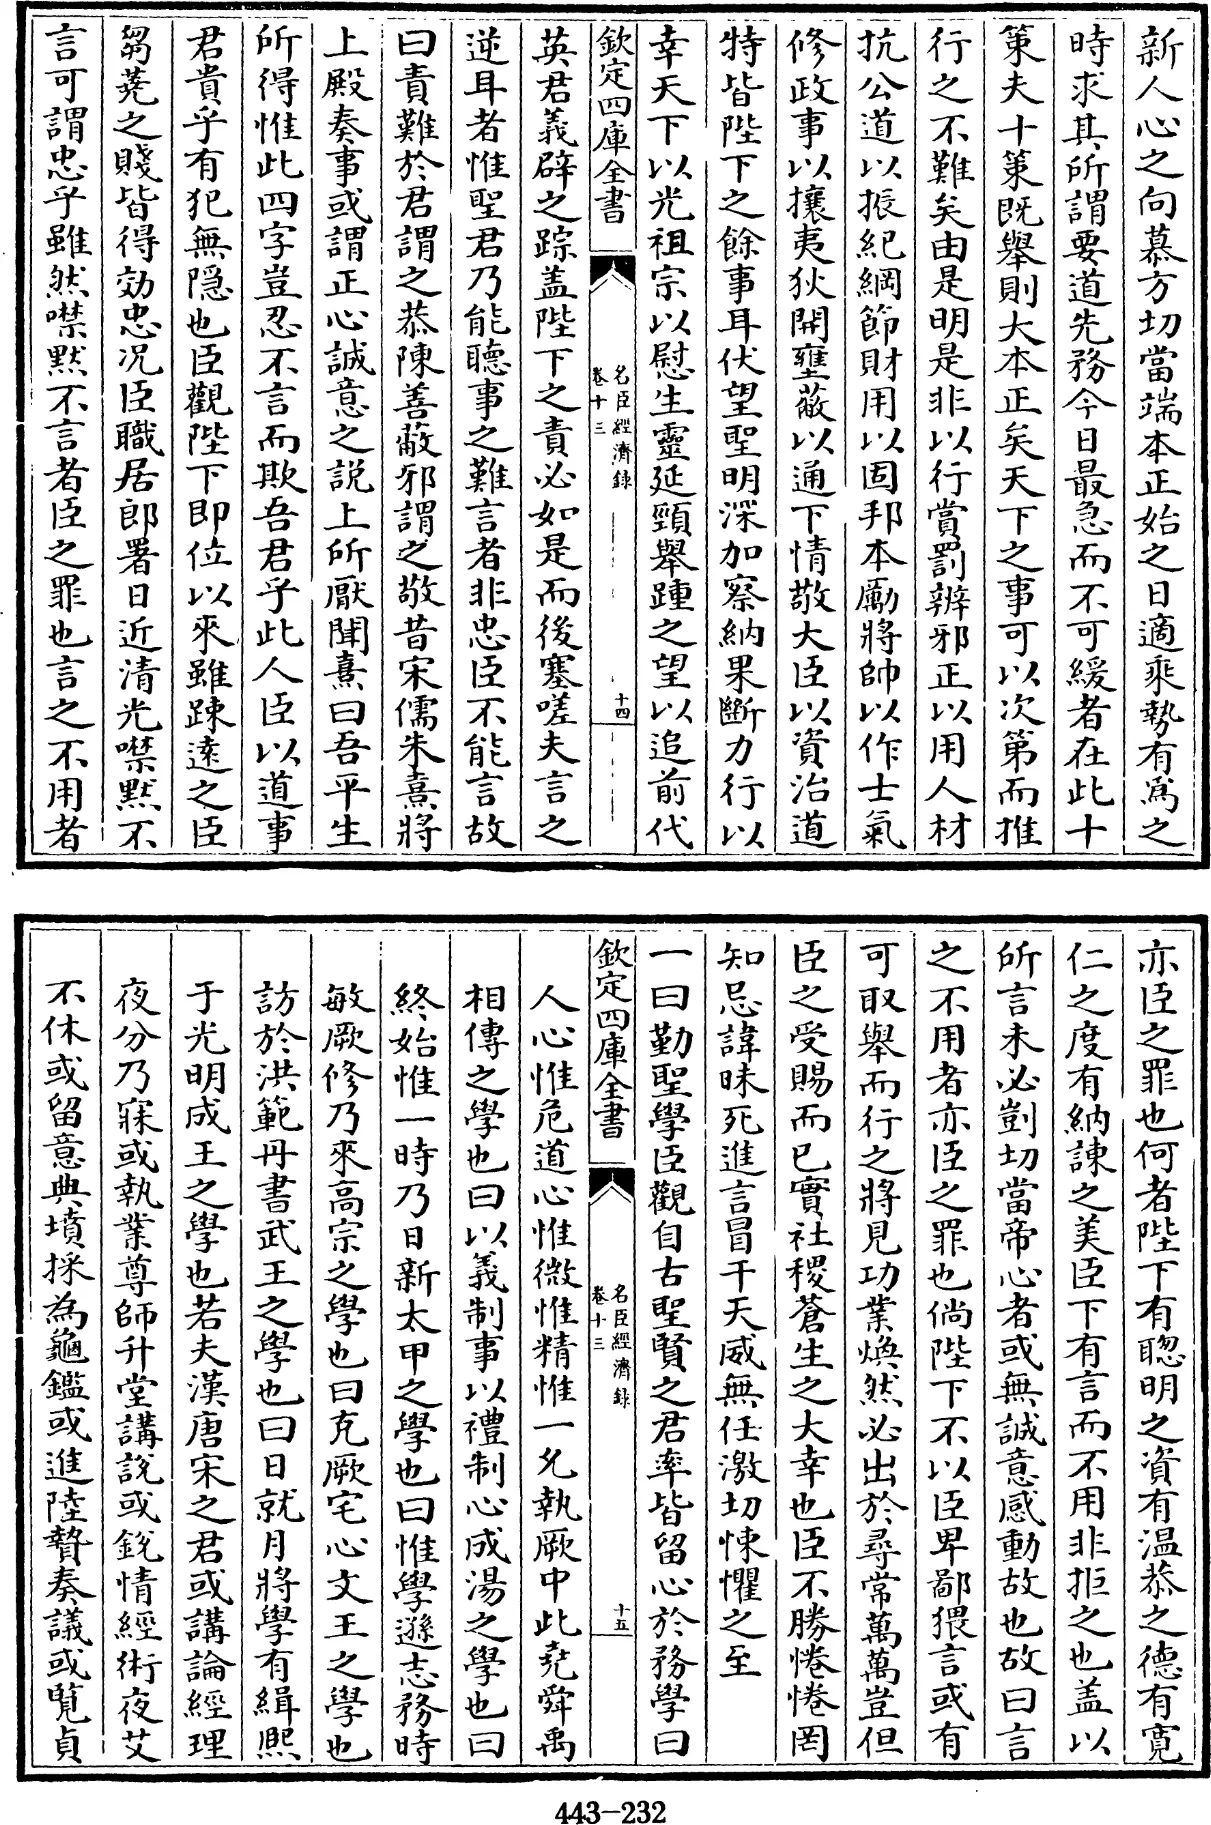 新人心之向慕方切當端本正始之日適乘勢有為之
時求其所謂要道先務今日最急而不可緩者在此十
策夫十策既舉則大本正矣天下之事可以次第而推
行之不難矣由是明是非以行賞罰辨邪正以用人材
抗公道以振紀綱節財用以固邦本勵將帥以作士氣
修政事以攘夷狄開壅蔽以通下情敬大臣以資治道
特皆陛下之餘事耳伏望聖明深加察納果斷力行以
幸天下以光祖宗以慰生靈延頸舉踵之望以追前代
欽定四庫全書
名臣經濟録
卷十三
十四
英君義辟之踪盖陛下之責必如是而後塞嗟夫言之
逆耳者惟聖君乃能聽事之難言者非忠臣不能言故
曰責難於君謂之恭陳善蔽邪謂之敬昔宋儒朱熹將
上殿奏事或謂正心誠意之説上所厭聞熹曰吾平生
所得惟此四字豈忍不言而欺吾君乎此人臣以道事
君貴乎有犯無隠也臣觀陛下即位以來雖踈逺之臣
芻蕘之賤皆得効忠况臣職居郎署日近清光噤黙不
言可謂忠乎雖然噤黙不言者臣之罪也言之不用者
亦臣之罪也何者陛下有聰明之資有温恭之德有寛
仁之度有納諫之美臣下有言而不用非拒之也盖以
所言未必剴切當帝心者或無誠意感動故也故曰言
之不用者亦臣之罪也倘陛下不以臣卑鄙猥言或有
可取舉而行之將見功業煥然必出於尋常萬萬豈但
臣之受賜而已實社稷蒼生之大幸也臣不勝惓惓罔
知忌諱昧死進言冒干天威無任激切悚懼之至
一曰勤聖學臣觀自古聖賢之君率皆留心於務學曰
欽定四庫全書
名臣經濟録
卷十三
十五
人心惟危道心惟微惟精惟一允執厥中此堯舜禹
相傳之學也曰以義制事以禮制心成湯之學也曰
終始惟一時乃日新太甲之學也曰惟學遜志務時
敏厥修乃來高宗之學也曰克厥宅心文王之學也
訪於洪範丹書武王之學也曰日就月將學有緝熙
于光明成王之學也若夫漢唐宋之君或講論經理
夜分乃寐或執業尊師升堂講說或銳情經術夜艾
不休或留意典墳採為龜鑑或進陸贄奏議或覧貞
443-232